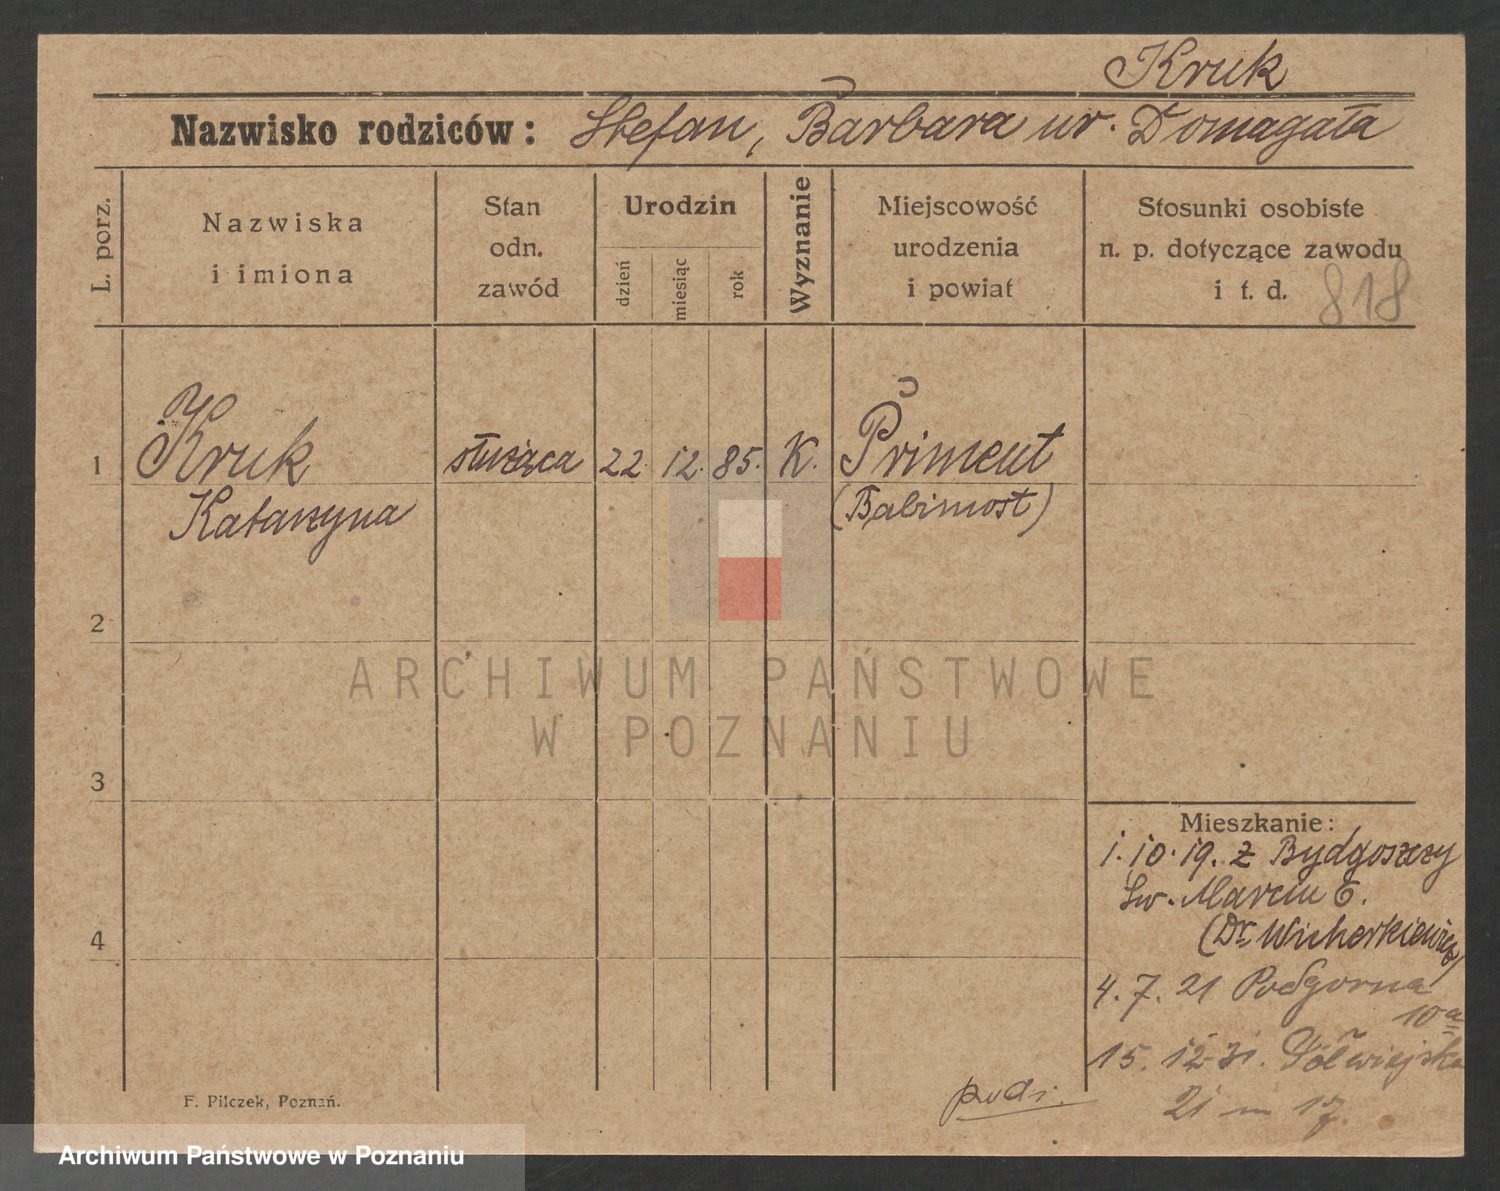 Kruk
Nazwisko rodziców: Stefan, Barbara ur. Domagała
L. porz.
Nazwiska
i imiona
Stan
odn.
zawód
Urodzin
dzień
miesiąc
rok
Wyznanie
Miejscowość
urodzenia
i powiat
Stosunki osobiste
n. p. dotyczące zawodu
i t. d.
818
1 Kruk służąca 22. 12. 85. K. Priment
Katarzyna (Babimost)
2
ARCHIWUM PAŃSTWOWE
W POZNANIU
3
Mieszkanie:
1. 10. 19. z Bydgoszczy
Św. Marcin 6.
(Dr. Wicherkiewicz)
4
4. 7. 21 Podgorna
10a
15. 12. 31. Półwiejska
21 m 17.
F. Pilczek, Poznań.
Archiwum Państwowe w Poznaniu